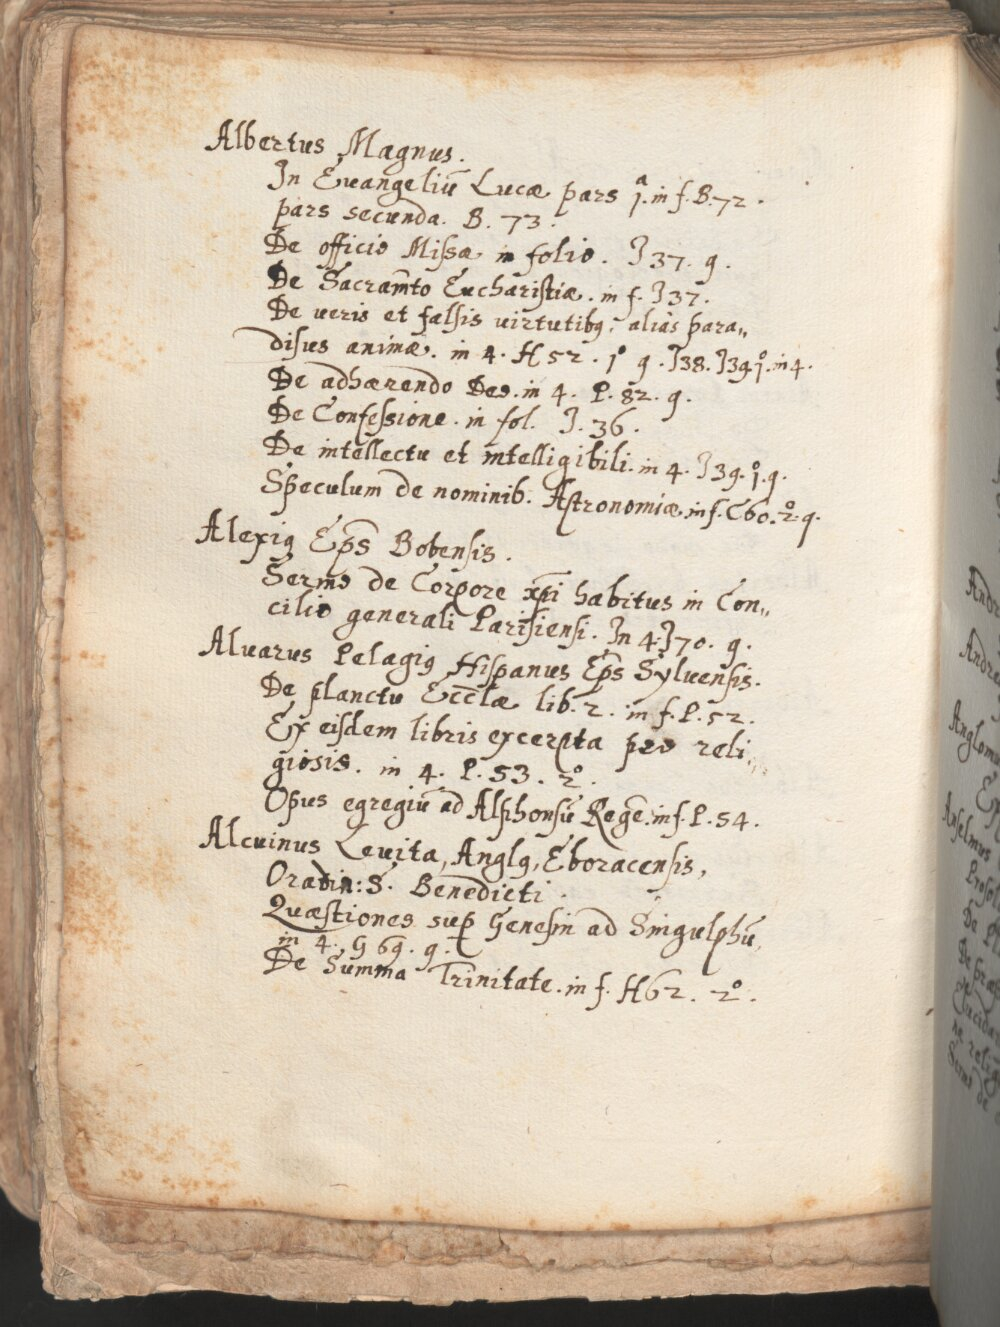 Albertus Magnus.
In Euangeliū Lucæ pars 1.ª in f. B. 72.
pars secunda. B. 73.
De officio Missæ in folio. J 37. q.
De Sacram̄to Eucharistiæ. in f. J 37.
De veris et falsis virtutibꝫ, alias para„
disus animæ. in 4. H 52. 1º q. J38. J39. 1º. in 4.
De adhærendo Deo. in 4. P. 82. q.
De Confessione. in fol. J. 36.
De intellectu et intelligibili. in 4. J 39. 1º. q.
Speculum de nominib. Astronomiæ in f. C 60. 2º. q.
Alexiꝰ Ep̄s Bobensis.
Sermo de Corpore xp̄i habitus in Con„
cilio generali Parisiensi. In 4. J 70. q.
Aluarus Pelagiꝰ Hispanus Ep̄s Syluensis.
De planctu Eccl̄æ lib. 2. in f. P. 52.
Ex eisdem libris excerpta pro reli„
giosis. in 4. P. 53. 2º.
Opus egregiū ad Alphonsū Regē. in f. P. 54.
Alcuinus Leuita, Anglꝰ, Eboracensis,
Oratin: S. Benedicti.
Quæstiones sup̄ Genesin ad Singulphū,
in 4. G 69. q.
De Summa Trinitate. in f. H 62. 2º.
Andre
Anselmus
De